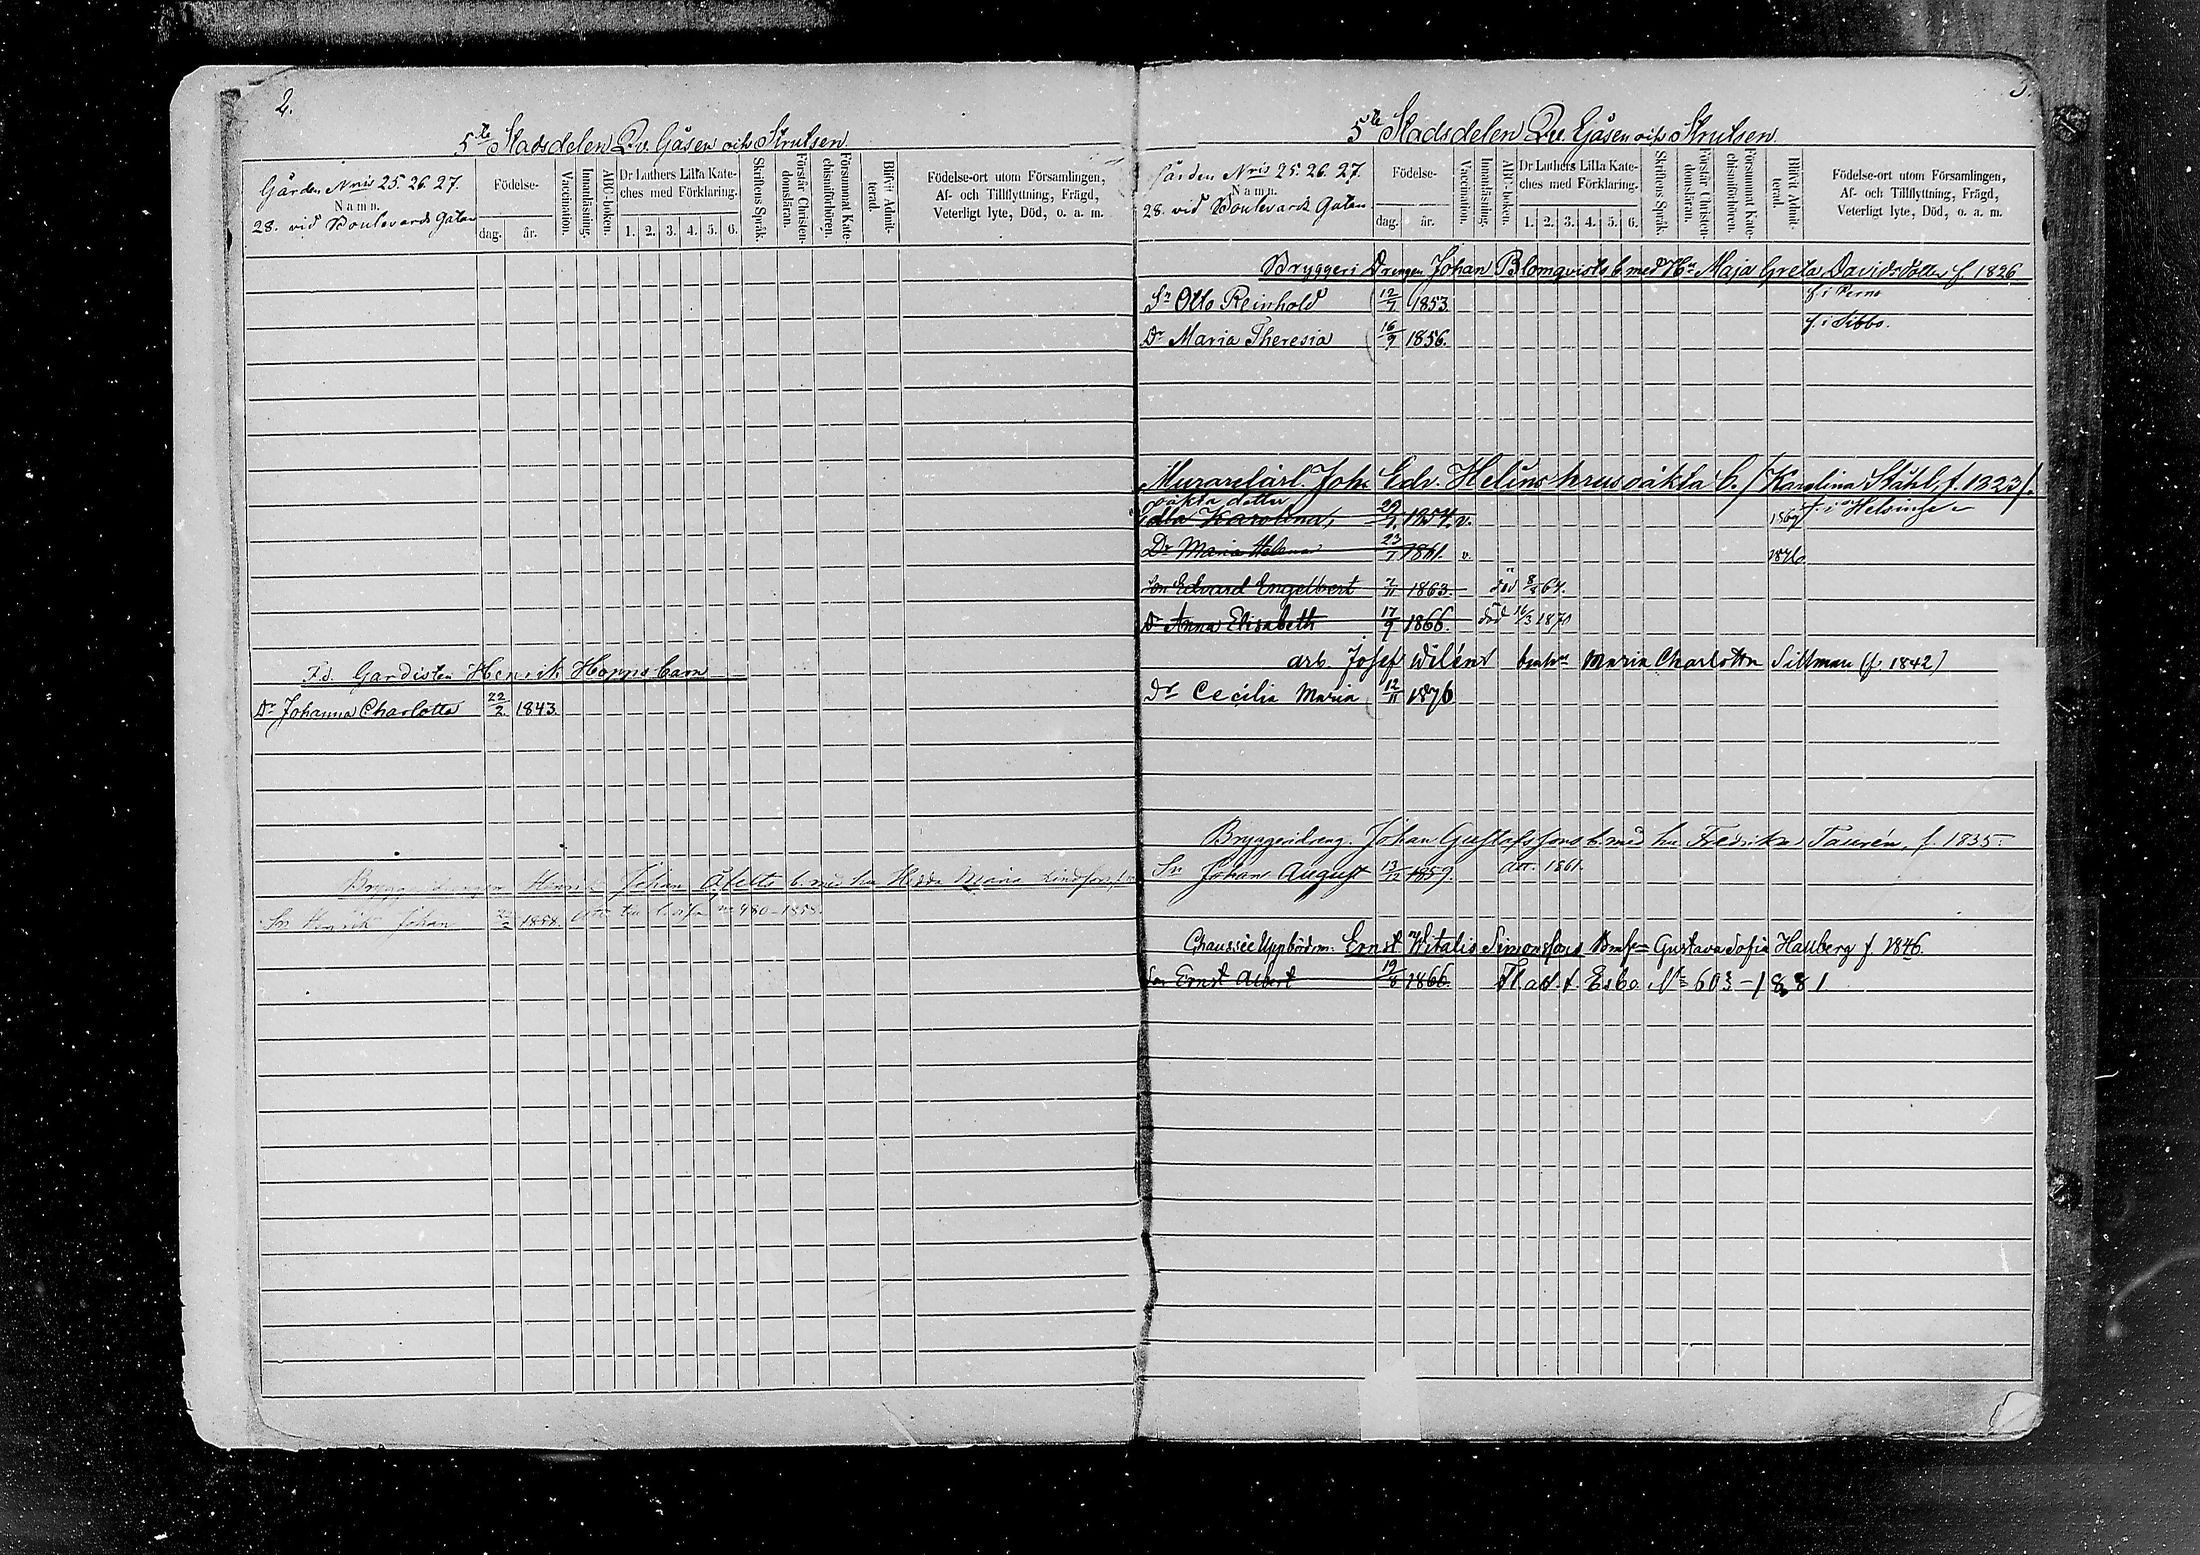 2.
5te Stadsdelen Qv. Gåsen och Strutsen
Gården Nris 25. 26. 27.
Namn.
28. vid Boulevards Gatan
Födelse-
dag. år.
Vaccination.
Innanläsning.
ABC-boken.
Dr Luthers Lilla Kate-
ches med Förklaring.
1. 2. 3. 4. 5. 6.
Skriftens Språk.
Förstår Christen-
domsläran.
Försummat Kate-
chismiförhören.
Blifvit Admit-
terad.
Födelse-ort utom Församlingen,
Af- och Tillflyttning, Frägd,
Veterligt lyte, Död, o. a. m.
F.d. Gardisten Henrik Hopps barn
Dr Johanna Charlotta 22/2 1843.
Bryggeridrengen Henrik Johan b. med hu Hedda Maria
Sn Henrik Johan 1858. 480-1858.
3.
5te Stadsdelen Qv. Gåsen och Strutsen
Gården Nris 25. 26. 27.
Namn.
28. vid Boulevards Gatan
Födelse-
dag. år.
Vaccination.
Innanläsning.
ABC-boken.
Dr Luthers Lilla Kate-
ches med Förklaring.
1. 2. 3. 4. 5. 6.
Skriftens Språk.
Förstår Christen-
domsläran.
Försummat Kate-
chismiförhören.
Blifvit Admit-
terad.
Födelse-ort utom Församlingen,
Af- och Tillflyttning, Frägd,
Veterligt lyte, Död, o. a. m.
Bryggeri Drengen Johan Blomqvists b. med Hu Maja Greta Davidsdotter f. 1826
f. i Perno
Sn Otto Reinhold 12/7 1853.
f. i Sibbo.
Dr Maria Theresia 16/9 1856.
Murarelärl. Joh. Edv. Helins hrus oäkta b. / Karolina Ståhl, f. 1823/.
oäkta dotter
f. i Helsinge
Edla Karolina, 1854. v. 1869
Dr Maria Helena 23/7 1861. v. 1876
Son Edvard Engelbert 1863. död 64.
Dr Anna Elisabeth 17/9 1866. död 16/3 1870
arb. Josef Wiléns bmhu Maria Charlotta Sillman (f. 1842)
Dr Cecilia Maria 12/11 1876
Bryggeridreng. Johan Gustafssons b. med hu Fredrika Taurén, f. 1835.
Sn Johan August 13/12 1859. 1861.
Chaussée Uppbördsm: Ernst Witalis Simonssons Bmhu Gustava Sofia Hallberg f. 1846.
Son Ernst Albert 19/8 1866. Fl. att. t. Esbo No 603-1881